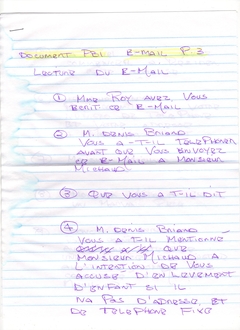 DOCUMENT PB1 E-MAIL P-3
LECTURE DU E-MAIL
① MME ROY AVEZ VOUS
ECRIT CE E-MAIL
② M. DENIS BRIAND
VOUS A-T-IL TELEPHONER
AVANT QUE VOUS ENVOYEZ
CE E-MAIL A MONSIEUR
MICHAUD
③ QUE VOUS A T-IL DIT
④ M. DENIS BRIAND
VOUS A T-IL MENTIONNE
QUE
MONSIEUR MICHAUD A
L'INTENTION DE VOUS
ACCUSE D'ENLEVEMENT
D'ENFANT SI IL
NA PAS D'ADRESSE, ET
DE TELEPHONE FIXE